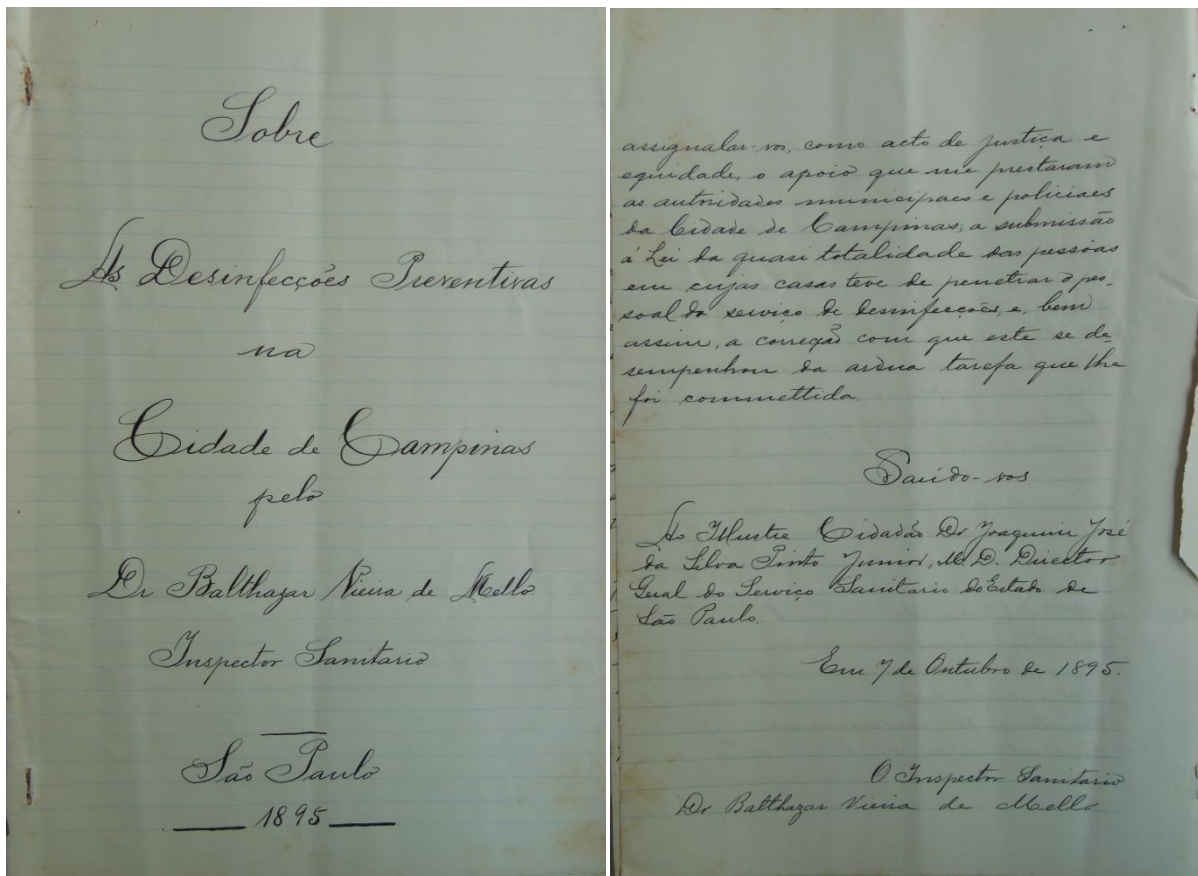 Sobre
As Desinfecções Preventivas
na
Cidade de Campinas
pelo
Dr Balthazar Vieira de Mello.
Inspector Sanitario
São Paulo
1895
assignalar-vos, como acto de justiça e
equidade, o apoio que me prestaram
as autoridades municipaes e policiaes
da Cidade de Campinas, a submissão
á Lei da quasi totalidade das pessôas
em cujas casas teve de penetrar o pes-
soal do serviço de desinfecções, e, bem
assim, a correção com que este se de-
sempenhou da ardua tarefa que lhe
foi commettida.
Saúdo-vos
Ao Illustre Cidadão Dr Joaquim José
da Silva Pinto Junior, M. D. Director
Geral do Serviço Sanitario do Estado de
São Paulo.
Em 7 de Outubro de 1895.
O Inspector Sanitario
Dr Balthazar Vieira de Mello.